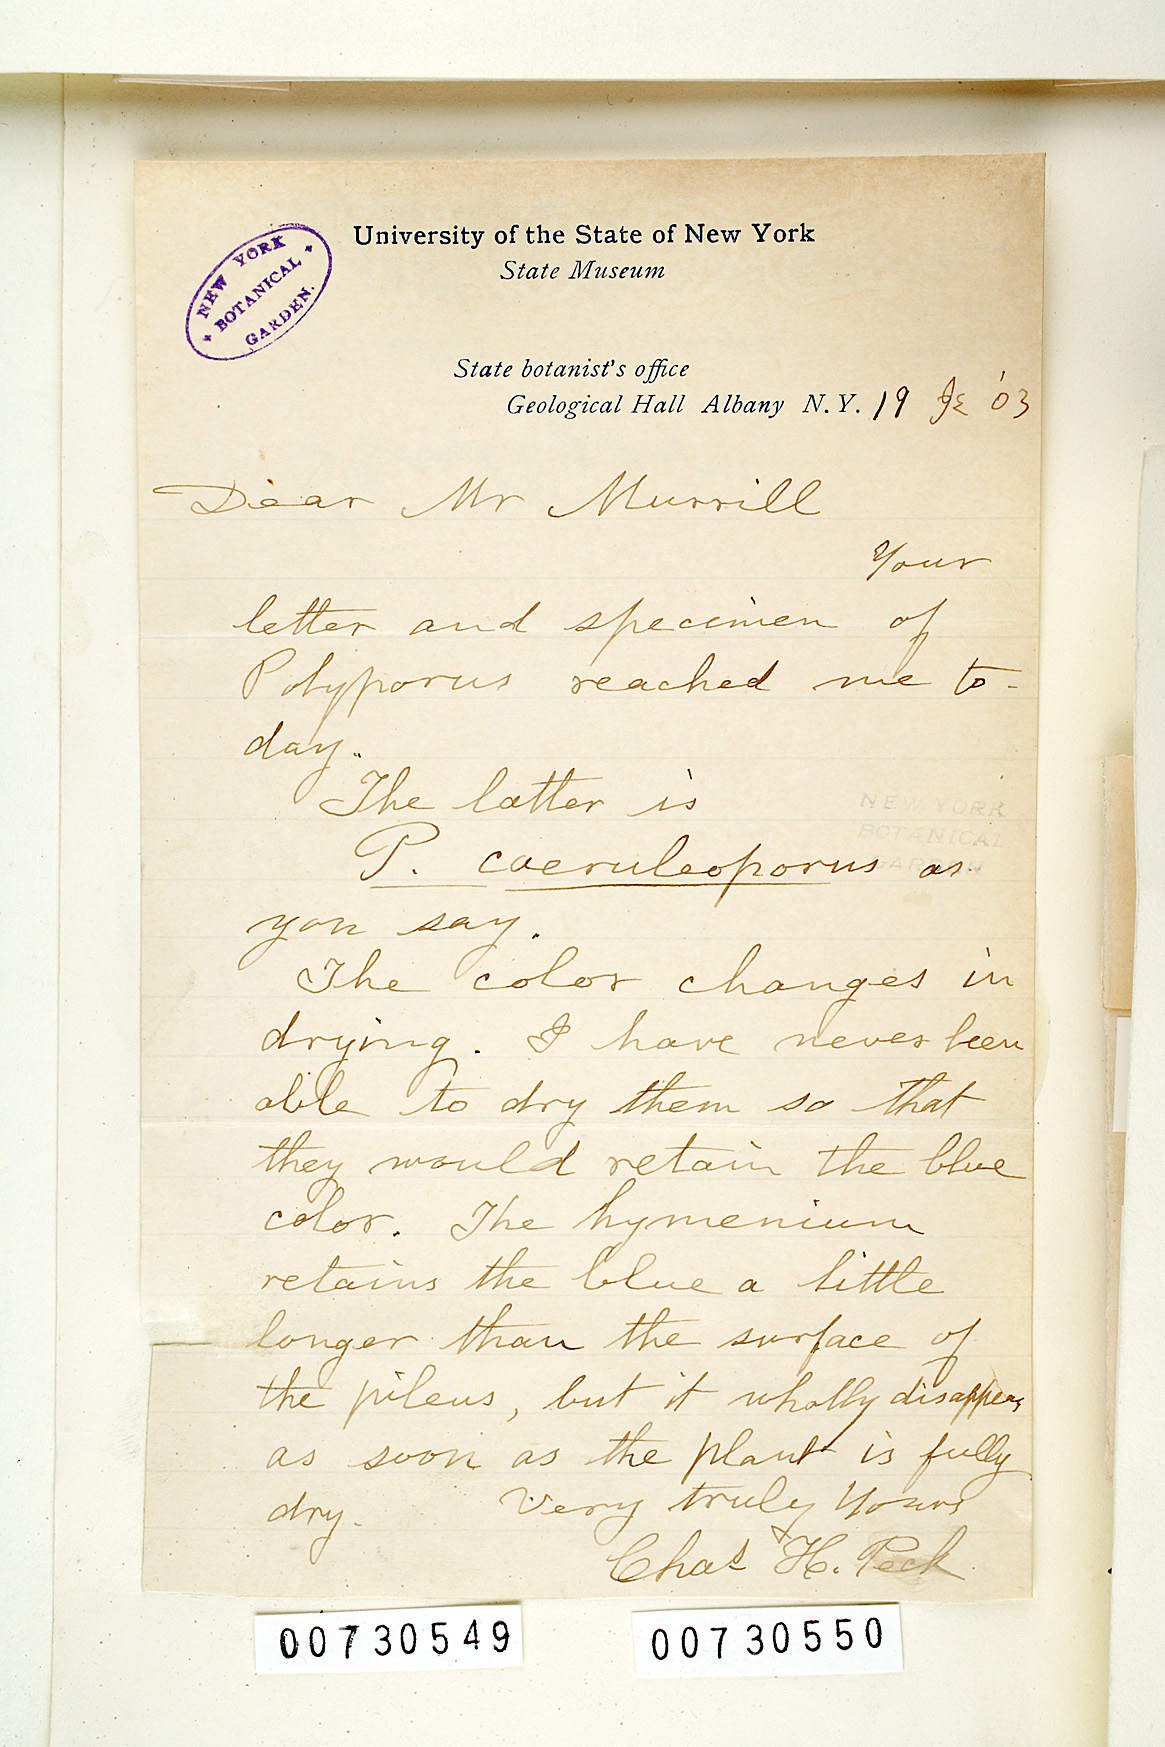 NEW YORK
BOTANICAL
GARDEN.
University of the State of New York
State Museum
State botanist's office
Geological Hall Albany N. Y. 19 '03
Dear Mr Murrill
Your
letter and specimen of
Polyporus reached me to-
day.
The latter is
NEW YORK
BOTANICAL
GARDEN
P. caeruleoporus as
you say.
The color changes in
drying. I have never been
able to dry them so that
they would retain the blue
color. The hymenium
retains the blue a little
longer than the surface of
the pileus, but it wholly disappears
as soon as the plant is fully
dry. Very truly Yours
Chas H. Peck
00730549
00730550